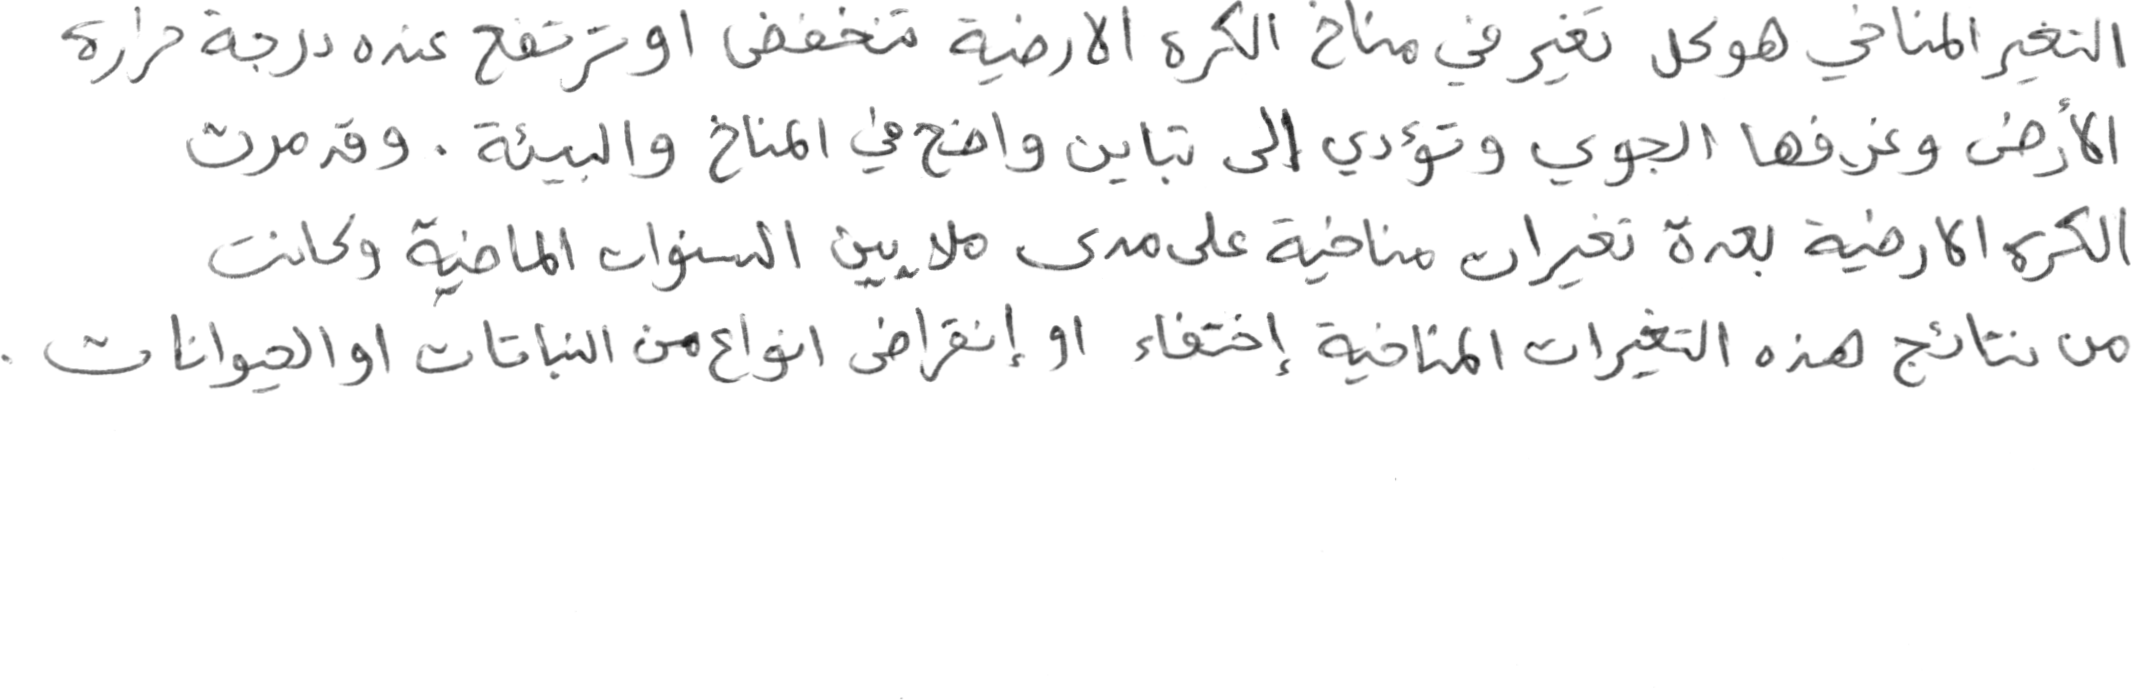 التغير المناخي هو كل تغير في مناخ الكره الارضية تنخفض او ترتفع عنده درجة حراره
الأرض وغرفها الجوي وتؤدي إلى تباين واضح في المناخ والبيئة . وقد مرت
الكره الارضية بعدة تغيرات مناخية على مدى ملايين السنوات الماضية وكانت
من نتائج هذه التغيرات المناخية إختفاء او إنقراض انواع من النباتات او الحيوانات .